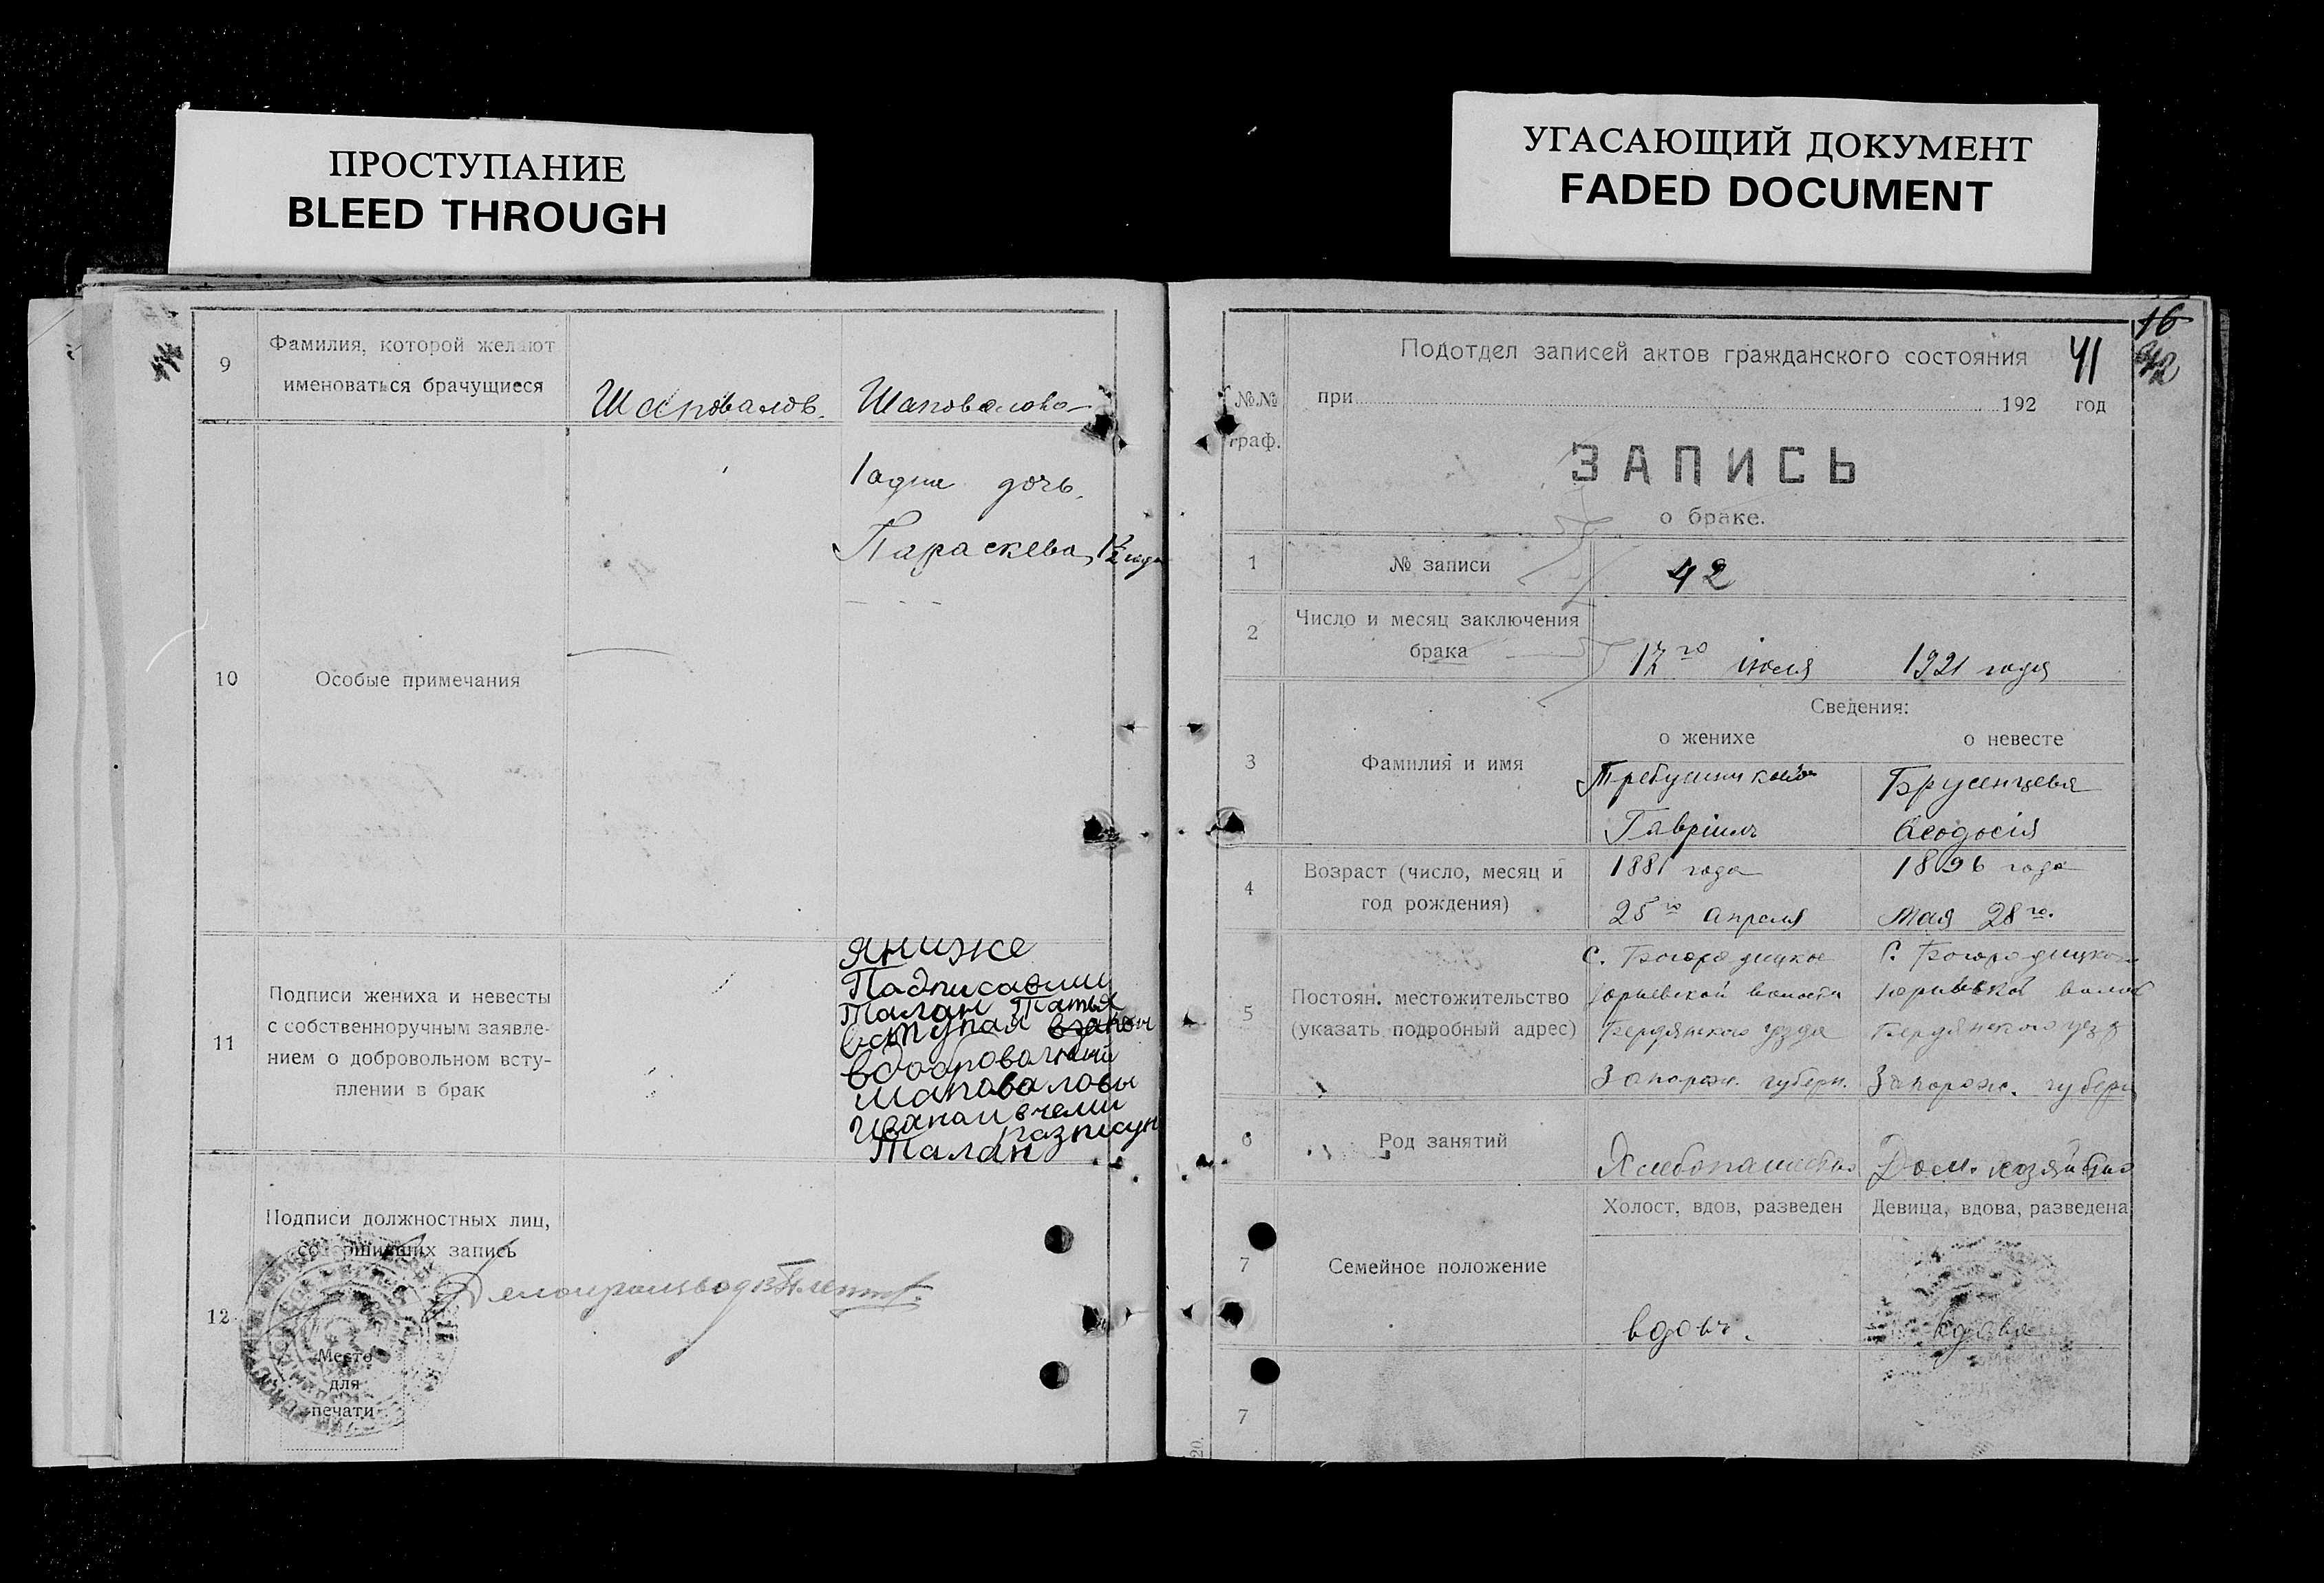 ПРОСТУПАНИЕ
BLEED THROUGH
УГАСАЮЩИЙ ДОКУМЕНТ
FADED DOCUMENT
9
Фамилия, которой желают
именоваться брачущиеся
Шаповалов.
Шаповалова
10
Особые примечания
1 адна дочь.
Параскева, 1½ года
11
Подписи жениха и невесты
с собственноручным заявле-
нием о добровольном всту-
плении в брак
Я ниже
Падписавши
Талан Татья
вступая
Шаповаловы
Талан
12
Подписи должностных лиц,
совершивших запись
Делопроизвод
Место
для
печати
16
42
41
№№
граф.
Подотдел записей актов гражданского состояния
при 192 год
ЗАПИСЬ
о браке.
1
№ записи
42
2
Число и месяц заключения
брака
17го июля 1921 года
3
Фамилия и имя
Сведения:
о женихе
о невесте
Гавріилъ
Брусенцева
Ѳеодосія
4
Возраст (число, месяц и
год рождения)
1881 года
25го апреля
1896 года
Мая 28го.
5
Постоян. местожительство
(указать подробный адрес)
с. Богородицкое
Юрьевской волости
Бердянского уезда
Запорож. губерн.
С. Богородицкое
Юрьевской волос
Бердянского уезд
Запорож. губерн
6
Род занятий
Хлебопашество
Дом. хозяйство
7
Семейное положение
Холост, вдов, разведен
Девица, вдова, разведена
вдовъ.
вдова
7
20.